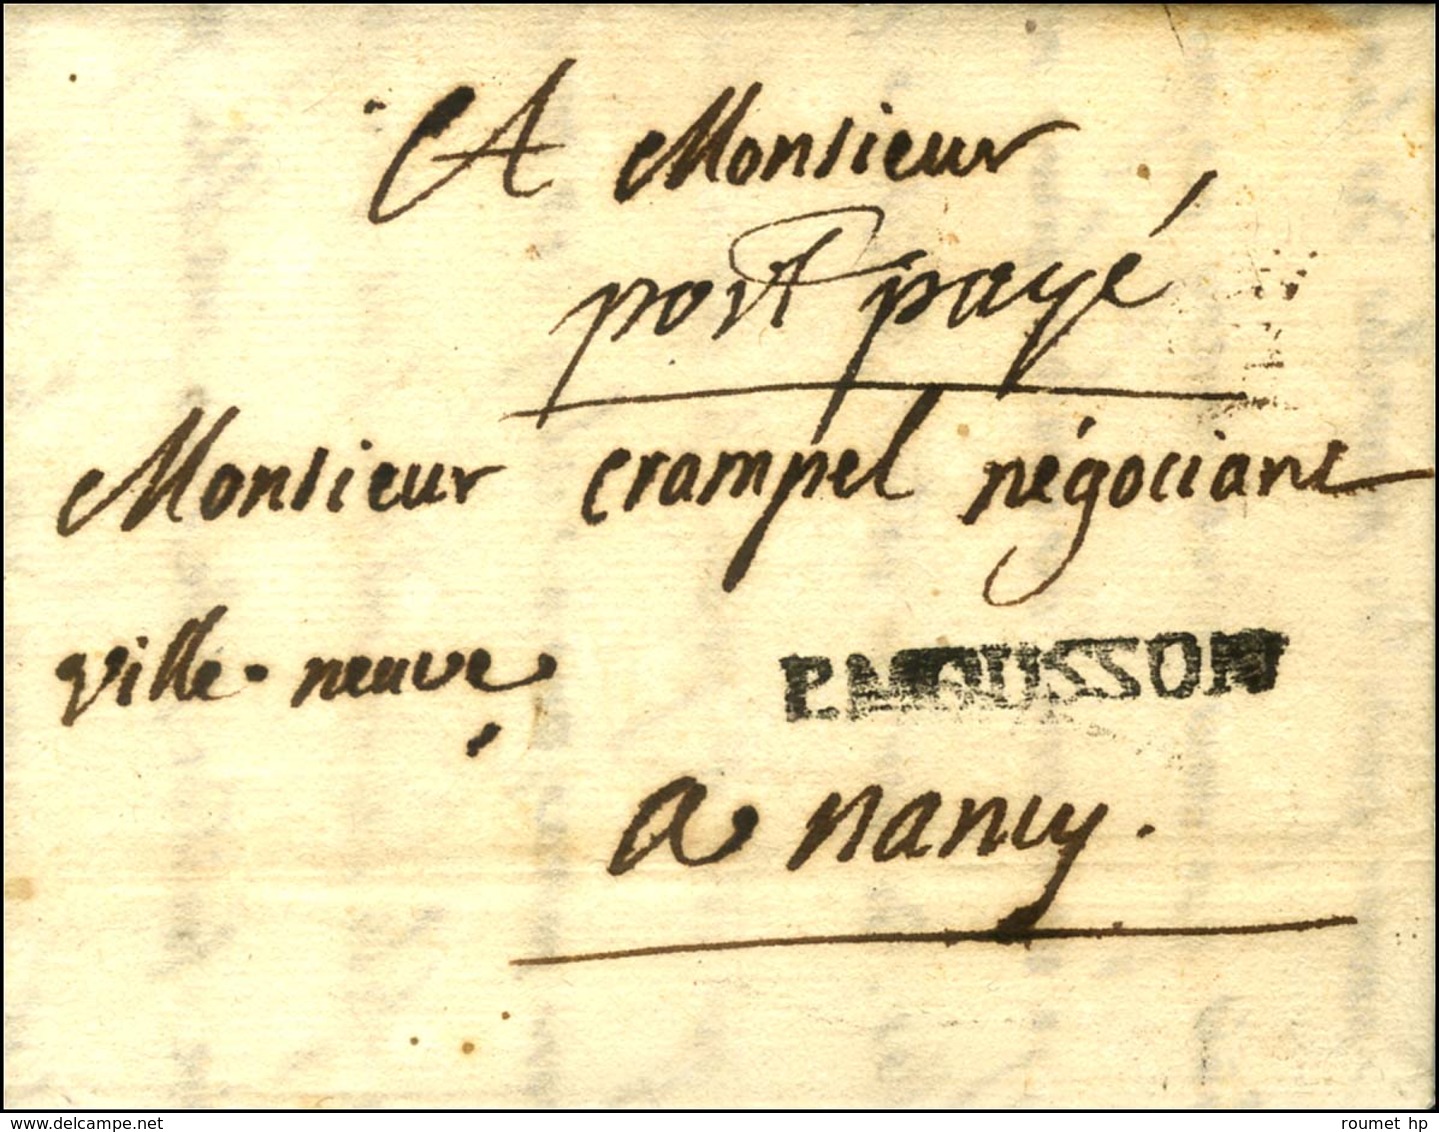 A Monsieur
port payé
Monsieur crampel négociant
ville-neuve
P.MOUSSON
a nancy.
www.delcampe.net
roumet hp